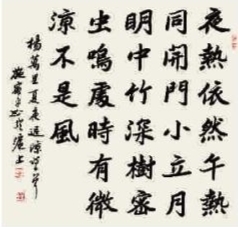 夜熱依然午熱
同開門小立月
明中竹深樹密
虫鳴處時有微
涼不是風
楊萬里夏夜追涼詩
於滬上